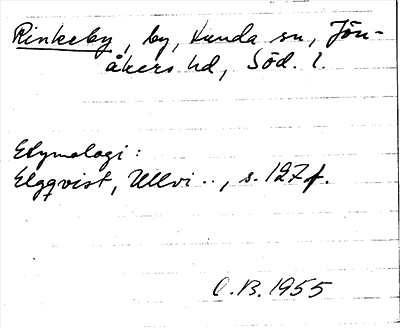 Rinkeby, by, Tunda sn, Jön-
åkers hd, Söd. l.
Etymologi:
Elgqvist, Ullvi.., s. 127 f.
O.B. 1955